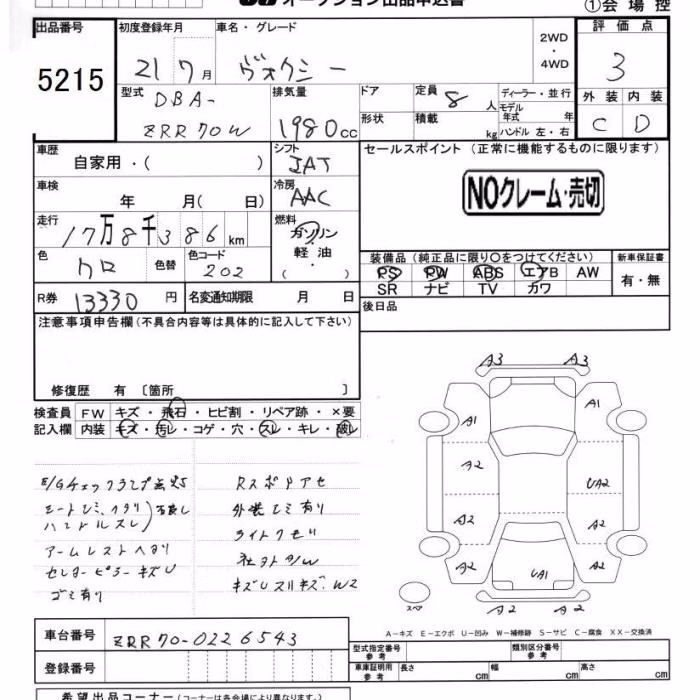 オークション出品申込書
①会場控
出品番号
5215
初度登録年月
21 7月
車名・グレード
ヴォクシー
2WD
・
4WD
評価点
3
外装 内装
C D
型式
DBA-
ZRR70W
排気量
1980cc
ドア
形状
定員 8 人
積載 kg
ディーラー・並行
モデル年式 年
ハンドル 左・右
車歴
自家用・( )
シフト
IAT
セールスポイント (正常に機能するものに限ります)
NOクレーム・売切
車検
年 月( 日)
冷房
AAC
走行
17万8千386km
燃料
ガソリン
・
軽油
( ・ )
色
クロ
色替
色コード
202
装備品 (純正品に限り○をつけてください)
PS PW ABS エアB AW
SR ナビ TV カワ
新車保証書
有・無
R券 13330円
名変通知期限 月 日
後日品
注意事項申告欄 (不具合内容等は具体的に記入して下さい)
修復歴 有 〔箇所 〕
検査員記入欄
FW キズ・飛石・ヒビ割・リペア跡・×要
内装 キズ・汚レ・コゲ・穴・スレ・キレ・破レ
E/Gチェックランプ点灯
シートシミ、ヘタリ
ハンドルスレ
アームレストヘタリ
センターピラーキズU
ゴミ有り
Rスポドアセ
外装シミ有り
ライトクモリ
キズUスリキズ、W2
A3 A3
A1 A1
A2 UA2
A2 A2
A2 A2
UA1
A2 A2
スペア
A-キズ E-エクボ U-凹み W-補修跡 S-サビ C-腐食 XX-交換済
車台番号 ZRR70-0226543
登録番号
型式指定番号 参考
類別区分番号 参考
車庫証明用 参考 長さ cm 幅 cm 高さ cm
希望出品コーナー (コーナーは各会場により異なります。)